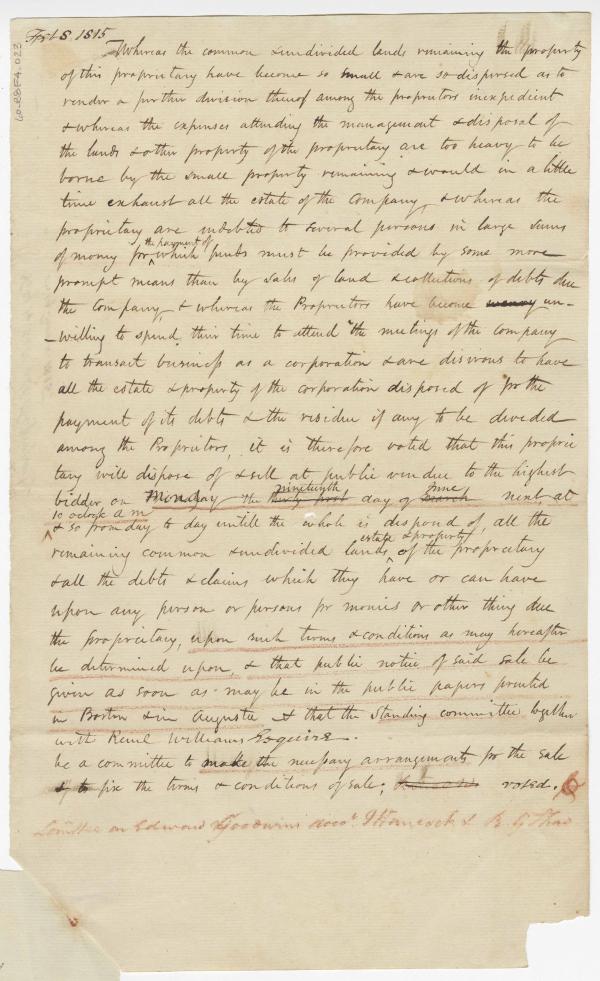 Feb 8 1815
60-88F4-023
Whereas the common & undivided lands remaining the property
of this proprietary have become so small & are so dispersed as to
render a further division thereof among the proprietors inexpedient
& whereas the expenses attending the management & disposal of
the lands & other property of the proprietary are too heavy to be
borne by the small property remaining & would in a little
time exhaust all the estate of the Company, & whereas the
proprietary are indebted to several persons in large sums
the payment of
of money for which funds must be provided by some more
prompt means than by sales of land & collections of debts due
the Company, & whereas the Proprietors have become un-
-willing to spend their time to attend the meetings of the company
to transact business as a corporation & are desirous to have
all the estate & property of the corporation disposed of for the
payment of its debts & the residue if any to be divided
among the Proprietors, it is therefore voted that this proprie
tary will dispose of & sell at public vendue to the highest
nineteenth June
bidder on Monday the thirty first day of March next at
10 oclock a m
& so from day to day untill the whole is disposed of, all the
estate & property
remaining common & undivided lands of the proprietary
& all the debts & claims which they have or can have
upon any person or persons for monies or other thing due
the proprietary, upon such terms & conditions as may hereafter
be determined upon, & that public notice of said sale be
given as soon as may be in the public papers printed
in Boston & in Augusta & that the Standing committee together
with Reuel Williams Esquire.
be a committee to make the necessary arrangements for the sale
& to fix the terms & conditions of sale; voted.
Comttee on Edward Goodwins accot. T Hancock & R G Shaw